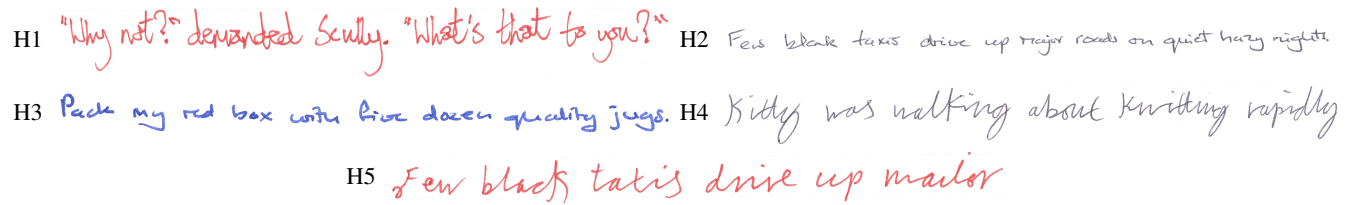 H1 "Why not?" demanded Scully. "What's that to you?"
H2 Few blank taxis drive up major roads on quiet hazy nights.
H3 Pack my red box with five dozen quality jugs.
H4 Kitty was walking about knitting rapidly
H5 Few black taxis drive up mailor